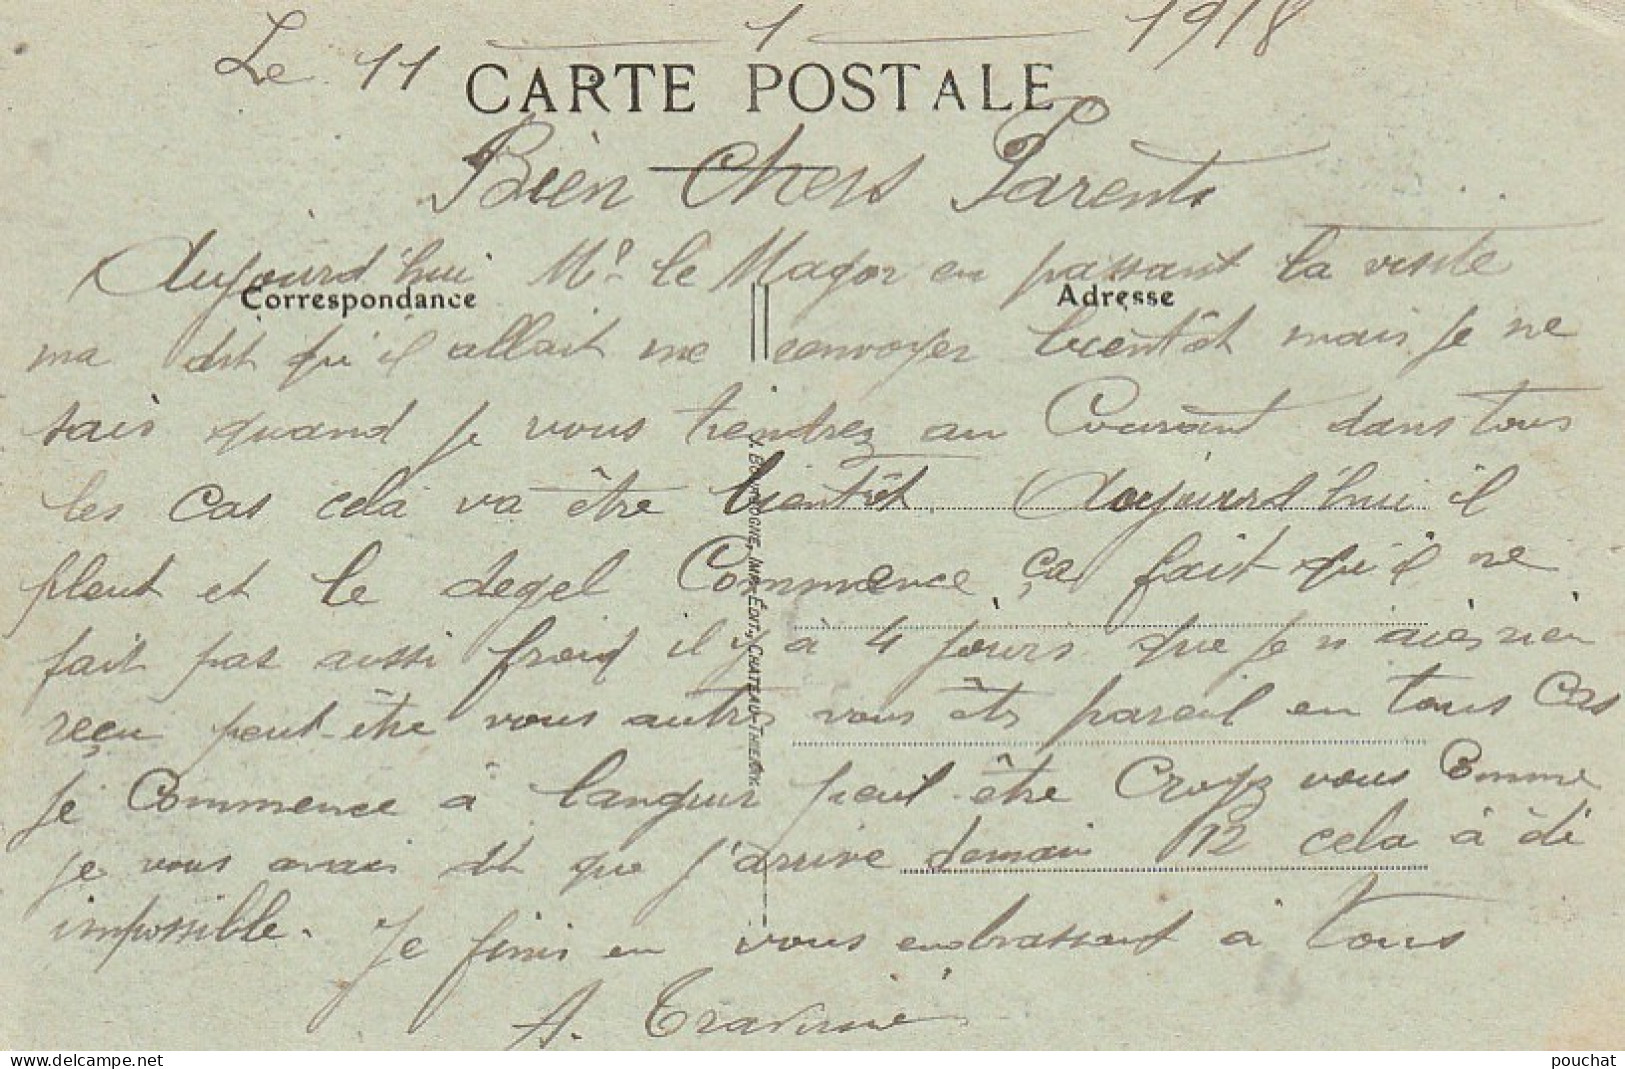 Le 11 1 1918
CARTE POSTALE
Bien Chers Parents
Aujourd'hui Mr le Major en passant la visite
Correspondance Adresse
ma dit qu'il allait me renvoyer bientôt mais je ne
sais quand je vous tiendrez au Courant dans tous
les cas celà va être bientôt. Aujourd'hui il
pleut et le degel Commence ça fait qu'il ne
fait pas aussi froid il y à 4 jours que je n'aies rien
reçu peut-être vous autres vous êts pareil en tous Cas
je Commence à languir peut être Croyez vous Comme
je vous avais dit que j'arrive demain 12 cela à été
impossible. Je finis en vous embrassant à tous
A.
J. BOURGOGNE, IMP.-ÉDIT., CHATEAU-THIERRY
pouchat